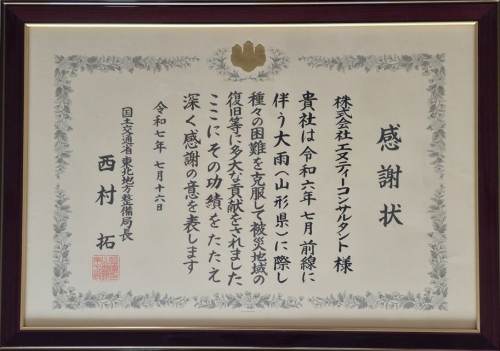 感謝状
株式会社エヌティーコンサルタント 様
貴社は令和六年七月前線に
伴う大雨(山形県)に際し
種々の困難を克服して被災地域の
復旧等に多大な貢献をされました
ここにその功績をたたえ
深く感謝の意を表します
令和七年 七月十六日
国土交通省 東北地方整備局長
西村 拓